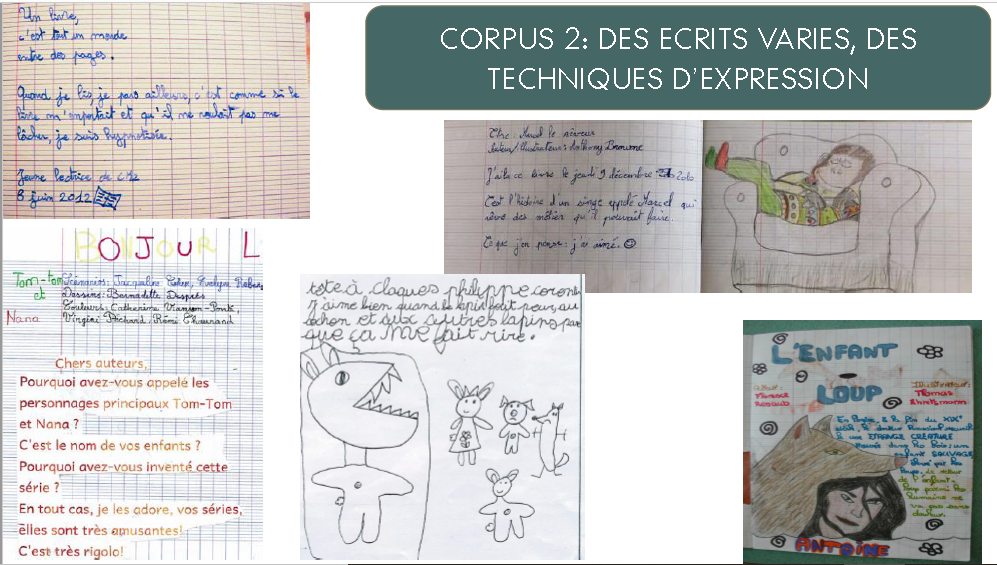 CORPUS 2: DES ECRITS VARIES, DES
TECHNIQUES D'EXPRESSION
Un livre,
c'est tout un monde
entre des pages.
Quand je lis, je pars ailleurs, c'est comme si le
livre m'emportait et qu'il ne voulait pas me
lâcher, je suis hypnotisée.
Jeune lectrice de CM2
8 juin 2012
Titre: Marcel le rêveur
Auteur/Illustrateur: Anthony Browne
J'ai lu ce livre le jeudi 9 décembre 2010
C'est l'histoire d'un singe appelé Marcel qui
rêve des métier qu'il pouvait faire.
Ce que j'en pense: j'ai aimé.
BONJOUR L
Tom-Tom
et
Nana
Scénarios: Jacqueline Cohen, Evelyne
Dessins: Bernadette Després
Couleurs: Catherine
Chers auteurs,
Pourquoi avez-vous appelé les
personnages principaux Tom-Tom
et Nana ?
C'est le nom de vos enfants ?
Pourquoi avez-vous inventé cette
série ?
En tout cas, je les adore, vos séries,
elles sont très amusantes!
C'est très rigolo!
tete à claques philippe corent
J'aime bien quand le lapin fait peur au
cochon et aux autres lapins par
que ça me fait rire.
L'ENFANT
LOUP
Illustrateur:
Thomas
ETRANGE CREATURE
SAUVAGE
ANTOINE